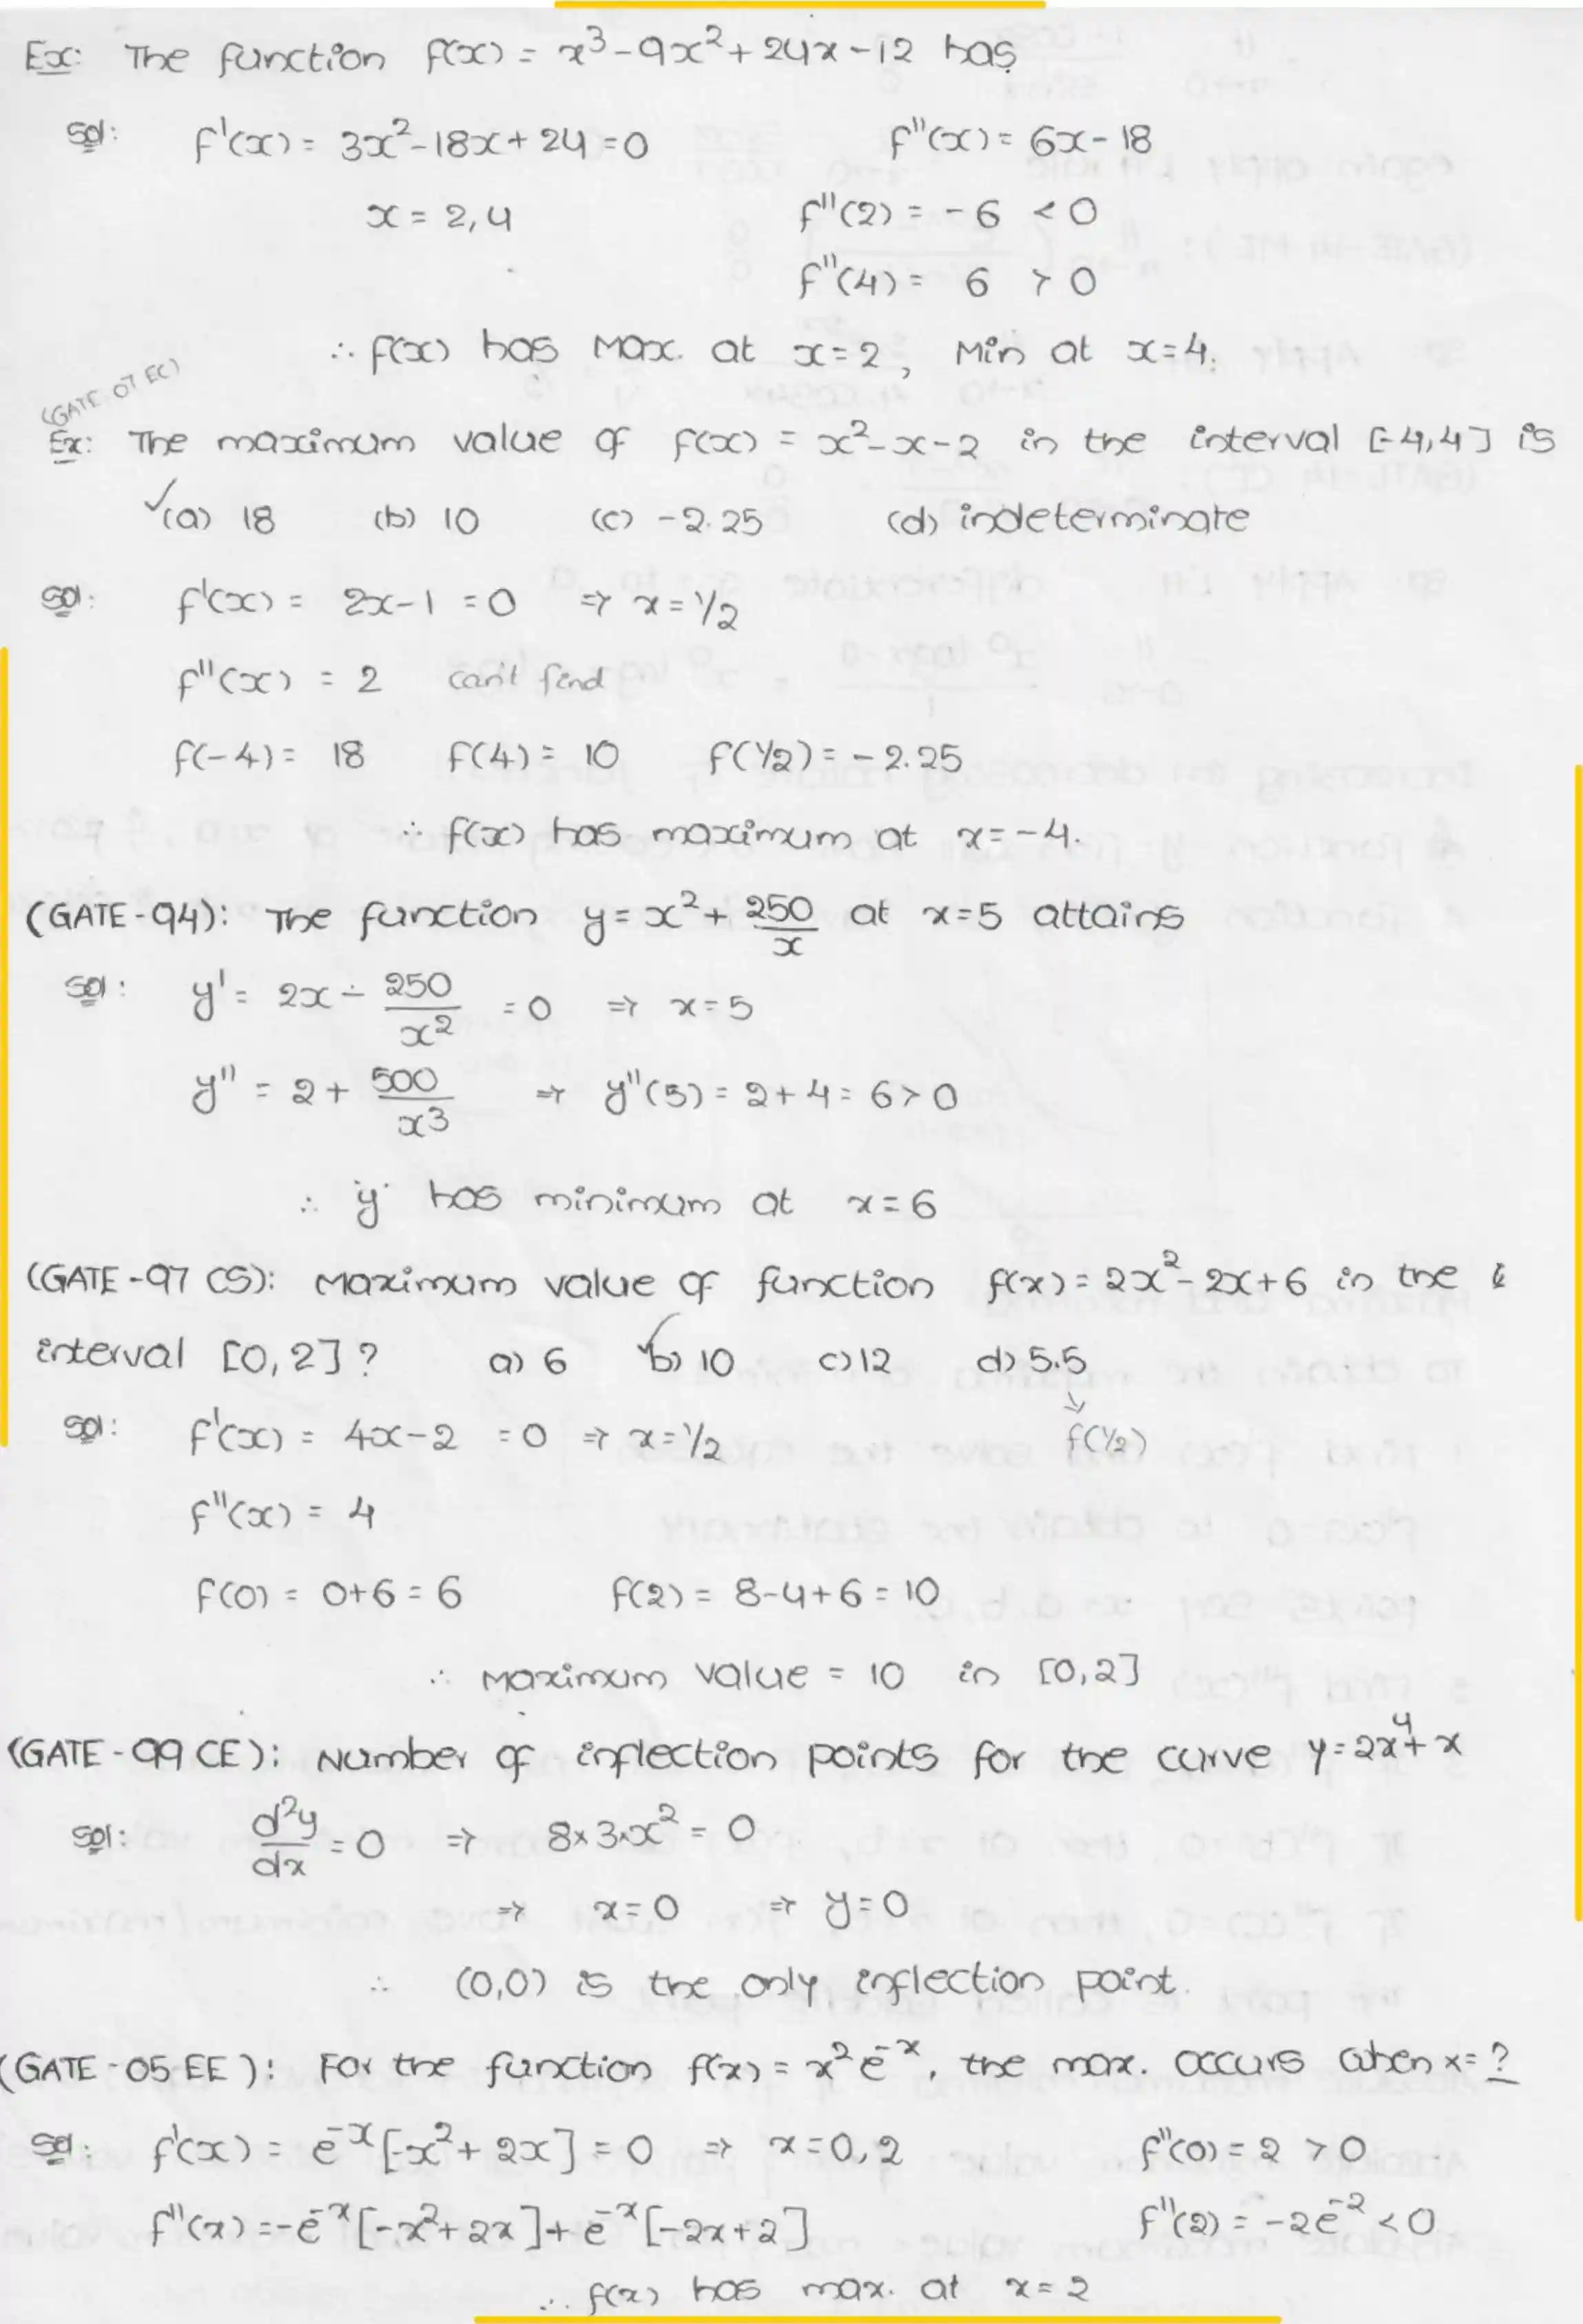 Ex: The function f(x) = x³-9x²+24x-12 has
Sol: f'(x) = 3x²-18x+24=0 f''(x) = 6x-18
x = 2,4 f''(2) = -6 < 0
f''(4) = 6 > 0
∴ f(x) has Max. at x=2, Min at x=4.
(GATE 07 EC)
Ex: The maximum value of f(x) = x²-x-2 in the interval [-4,4] is
✓(a) 18 (b) 10 (c) -2.25 (d) indeterminate
Sol: f'(x) = 2x-1 =0 ⇒ x=1/2
f''(x) = 2 can't find
f(-4) = 18 f(4) = 10 f(1/2) = -2.25
∴ f(x) has maximum at x=-4.
(GATE-94): The function y = x² + 250/x at x=5 attains
Sol: y' = 2x - 250/x² = 0 ⇒ x=5
y'' = 2 + 500/x³ ⇒ y''(5) = 2+4 = 6>0
∴ 'y' has minimum at x=6
(GATE-97 CS): Maximum value of function f(x) = 2x²-2x+6 in the
interval [0,2]? a) 6 ✓b) 10 c) 12 d) 5.5
↓
Sol: f'(x) = 4x-2 =0 ⇒ x=1/2 f(1/2)
f''(x) = 4
f(0) = 0+6 = 6 f(2) = 8-4+6 = 10
∴ Maximum value = 10 in [0,2]
(GATE-99 CE): Number of inflection points for the curve y=2x⁴+x
Sol: d²y/dx = 0 ⇒ 8×3×x² = 0
⇒ x=0 ⇒ y=0
∴ (0,0) is the only inflection point.
(GATE-05 EE): For the function f(x) = x²e⁻ˣ, the max. occurs when x=?
Sol: f'(x) = e⁻ˣ[-x²+2x] = 0 ⇒ x=0,2 f''(0) = 2 > 0
f''(x) = -e⁻ˣ[-x²+2x]+e⁻ˣ[-2x+2] f''(2) = -2e⁻² < 0
∴ f(x) has max. at x=2